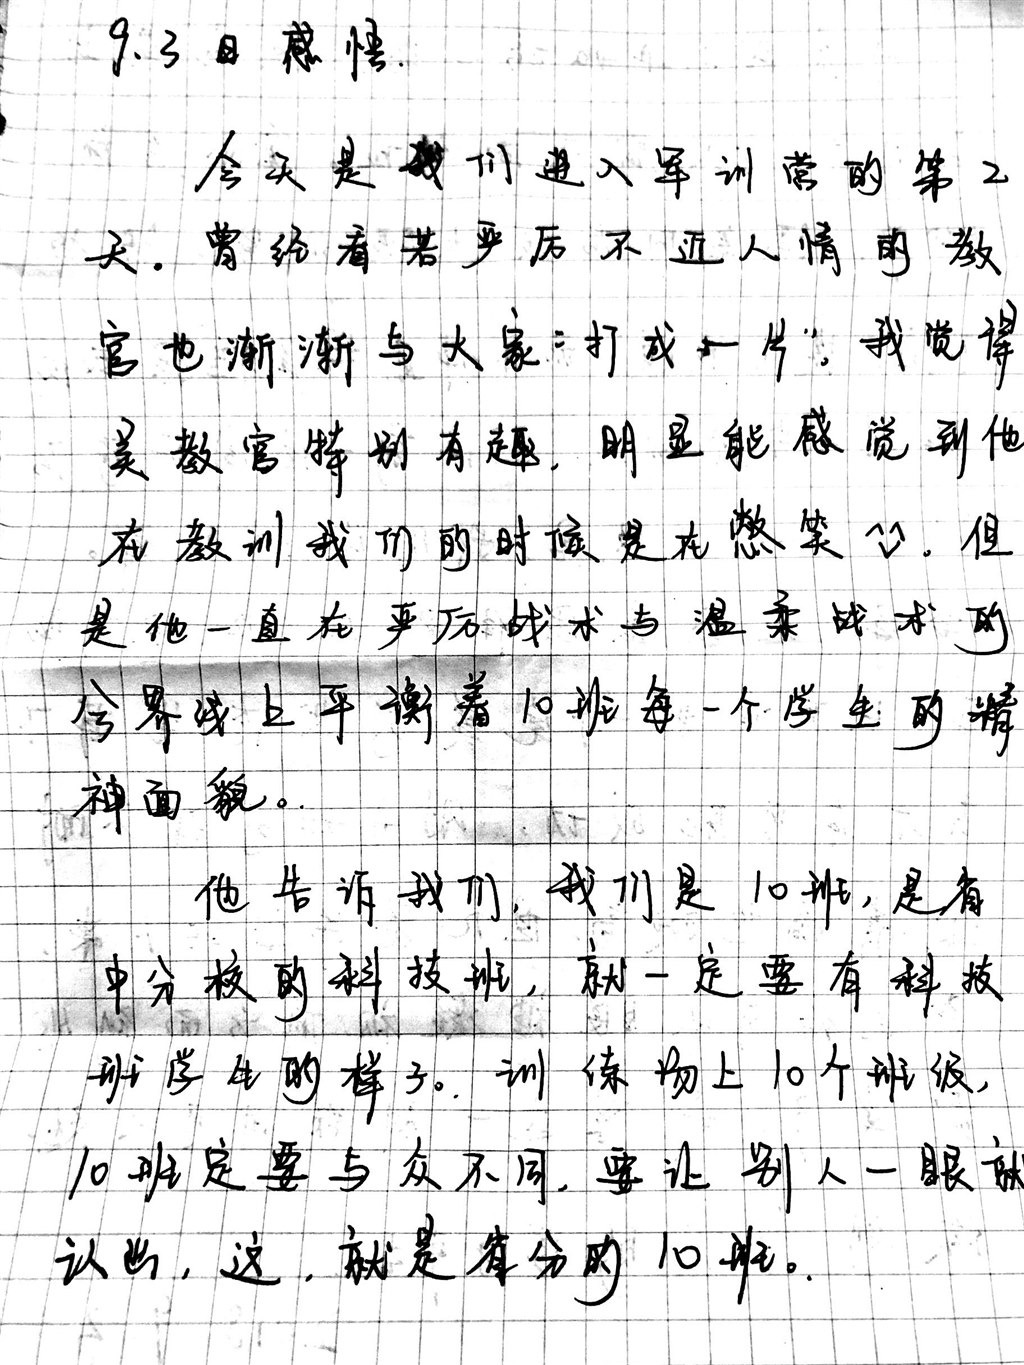 9.3日感悟.
今天是我们进入军训营的第2
天。曾经看着严厉不近人情的教
官也渐渐与大家“打成一片”，我觉得
吴教官特别有趣，明显能感觉到他
在教训我们的时候是在憋笑。但
是他一直在严厉战术与温柔战术的
分界线上平衡着10班每一个学生的精
神面貌。
他告诉我们，我们是10班，是省
中分校的科技班，就一定要有科技
班学生的样子。训练场上10个班级，
10班定要与众不同，要让别人一眼就
认出，这，就是省分的10班。